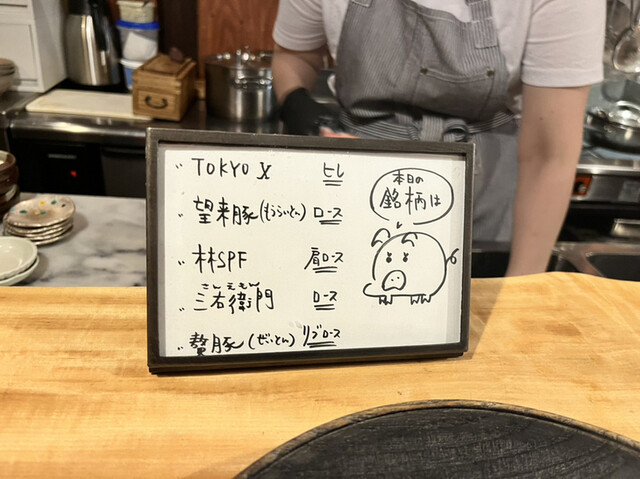 TOKYO X ヒレ
望来豚(もうらいとん) ロース
林SPF 肩ロース
さんえもん
三右衛門 ロース
贅豚(ぜいとん) リブロース
本日の
銘柄は